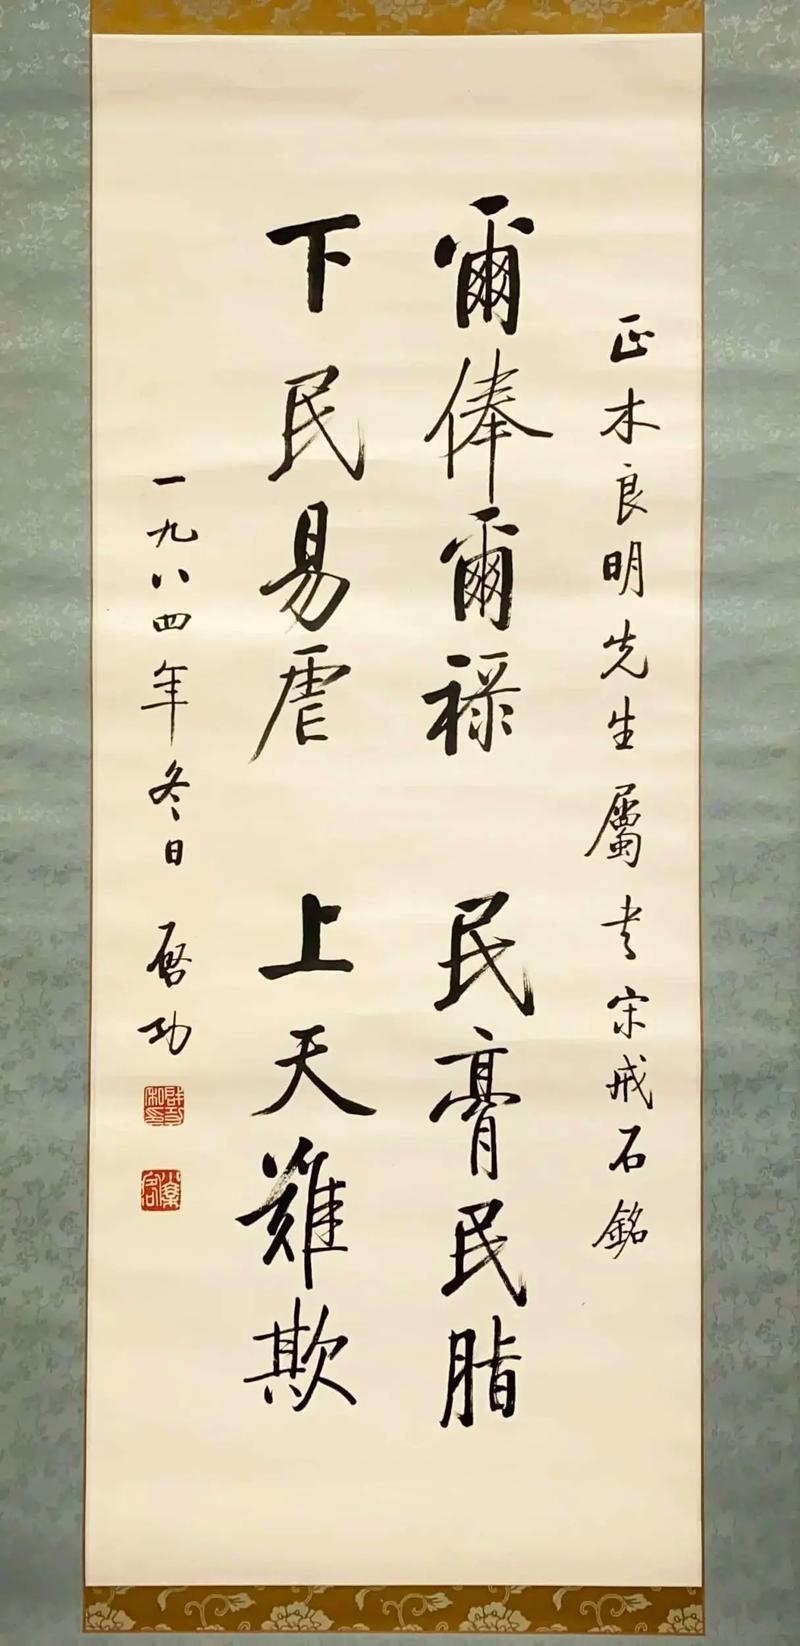 正木良明先生屬书宋戒石銘
爾俸爾祿 民膏民脂
下民易虐 上天難欺
一九八四年冬日 启功